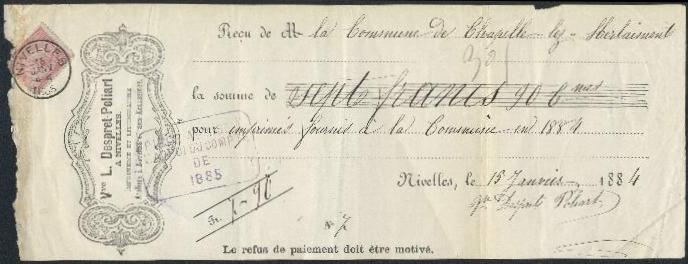 NIVELLES
15
JANV
1885
Vve L. Despret-Poliart
A NIVELLES.
IMPRIMERIE ET LITHOGRAPHIE
Reçu de M la Commune de Chapelle-lez-Herlaimont
la somme de sept francs 90 c.mes
pour imprimés fournis à la Commune en 1884
COMPTE
DE
1885
Nivelles, le 15 Janvier 1884
Fr. 7-90
Vve Despret Poliart
No 7
Le refus de paiement doit être motivé.